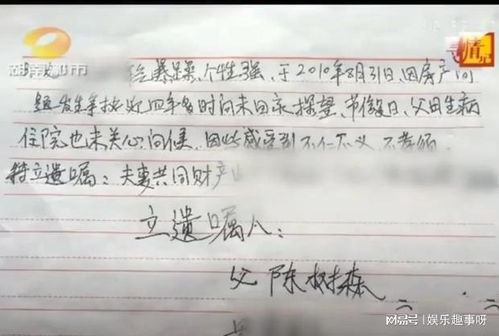 湖南都市
给暴躁、个性强、于2010年8月31日、因房产问
题发生争执近四年多时间未回家探望、节假日、父母生病
住院也未关心问候、因此感受到不仁不义、不孝
特立遗嘱：夫妻共同财产
立遗嘱人：
父 陈树森
搜狐号@娱乐趣事呀